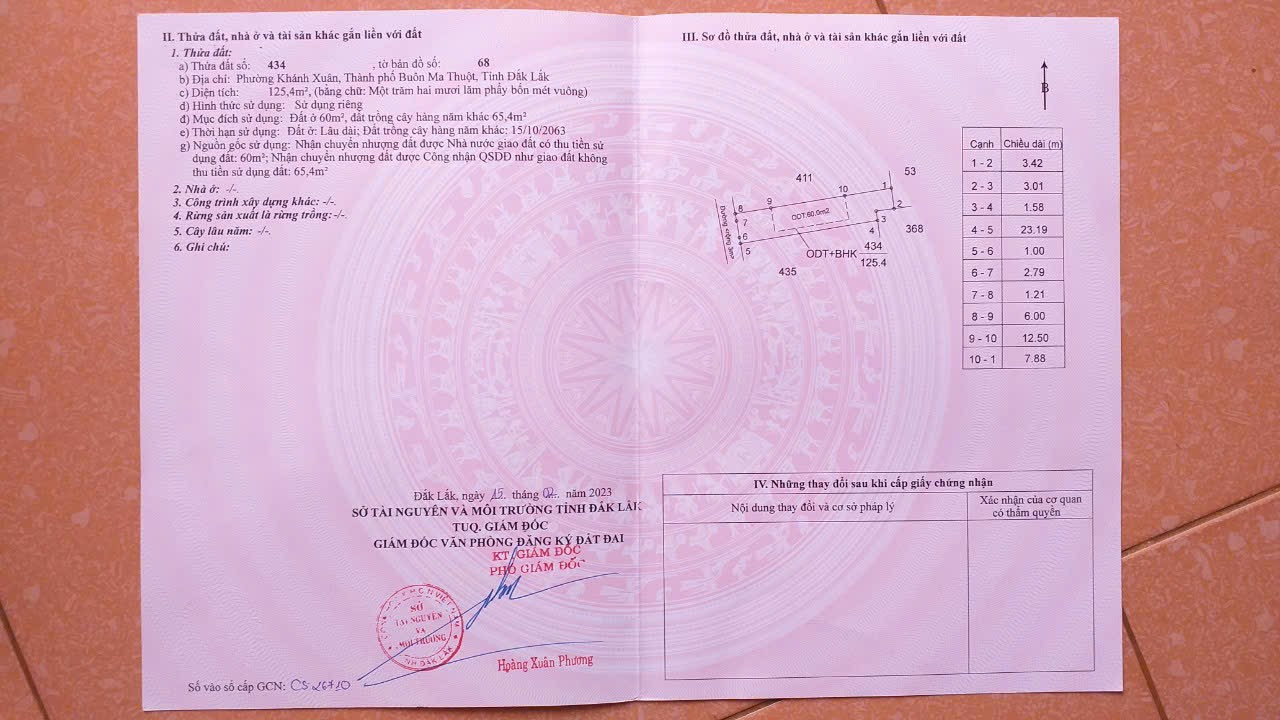 II. Thửa đất, nhà ở và tài sản khác gắn liền với đất
1. Thửa đất:
a) Thửa đất số: 434 , tờ bản đồ số: 68
b) Địa chỉ: Phường Khánh Xuân, Thành phố Buôn Ma Thuột, Tỉnh Đắk Lắk
c) Diện tích: 125,4m², (bằng chữ: Một trăm hai mươi lăm phẩy bốn mét vuông)
d) Hình thức sử dụng: Sử dụng riêng
đ) Mục đích sử dụng: Đất ở 60m², đất trồng cây hàng năm khác 65,4m²
e) Thời hạn sử dụng: Đất ở: Lâu dài; Đất trồng cây hàng năm khác: 15/10/2063
g) Nguồn gốc sử dụng: Nhận chuyển nhượng đất được Nhà nước giao đất có thu tiền sử
dụng đất: 60m²; Nhận chuyển nhượng đất được Công nhận QSDĐ như giao đất không
thu tiền sử dụng đất: 65,4m²
2. Nhà ở: -/-.
3. Công trình xây dựng khác: -/-.
4. Rừng sản xuất là rừng trồng:-/-.
5. Cây lâu năm: -/-.
6. Ghi chú:
Đắk Lắk, ngày 15 tháng 02 năm 2023
SỞ TÀI NGUYÊN VÀ MÔI TRƯỜNG TỈNH ĐẮK LẮK
TUQ. GIÁM ĐỐC
GIÁM ĐỐC VĂN PHÒNG ĐĂNG KÝ ĐẤT ĐAI
KT. GIÁM ĐỐC
PHÓ GIÁM ĐỐC
SỞ
TÀI NGUYÊN
VÀ
MÔI TRƯỜNG
TỈNH ĐẮK LẮK
Hoàng Xuân Phương
Số vào sổ cấp GCN: CS 26710
III. Sơ đồ thửa đất, nhà ở và tài sản khác gắn liền với đất
B
411
53
368
435
1
2
3
4
5
6
7
8
9
10
ODT:60.0m2
ODT+BHK 434
125.4
Cạnh Chiều dài (m)
1 - 2 3.42
2 - 3 3.01
3 - 4 1.58
4 - 5 23.19
5 - 6 1.00
6 - 7 2.79
7 - 8 1.21
8 - 9 6.00
9 - 10 12.50
10 - 1 7.88
IV. Những thay đổi sau khi cấp giấy chứng nhận
Nội dung thay đổi và cơ sở pháp lý
Xác nhận của cơ quan
có thẩm quyền